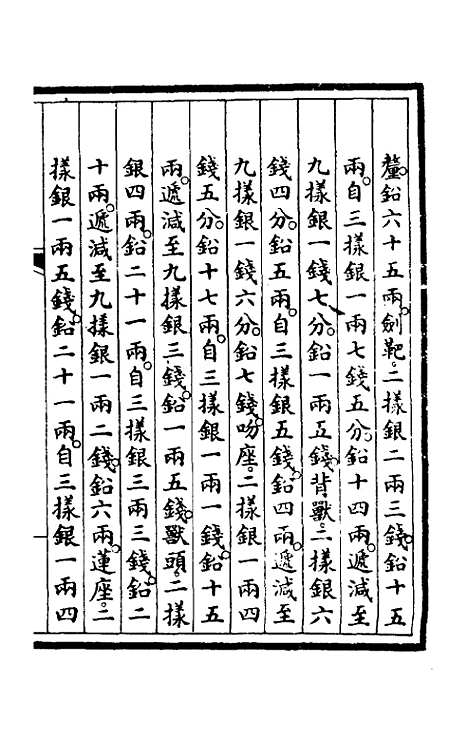 釐。鉛六十五兩。劍靶。二樣銀二兩三錢。鉛十五
兩。自三樣銀一兩七錢五分。鉛十四兩。遞減至
九樣銀一錢七分。鉛一兩五錢。背獸。二樣銀六
錢四分。鉛五兩。自三樣銀五錢。鉛四兩。遞減至
九樣銀一錢六分。鉛七錢。吻座。二樣銀一兩四
錢五分。鉛十七兩。自三樣銀一兩一錢。鉛十五
兩。遞減至九樣銀三錢。鉛一兩五錢。獸頭。二樣
銀四兩。鉛二十一兩。自三樣銀三兩三錢。鉛二
十兩。遞減至九樣銀一兩二錢。鉛六兩。蓮座。二
樣銀一兩五錢。鉛二十一兩。自三樣銀一兩四